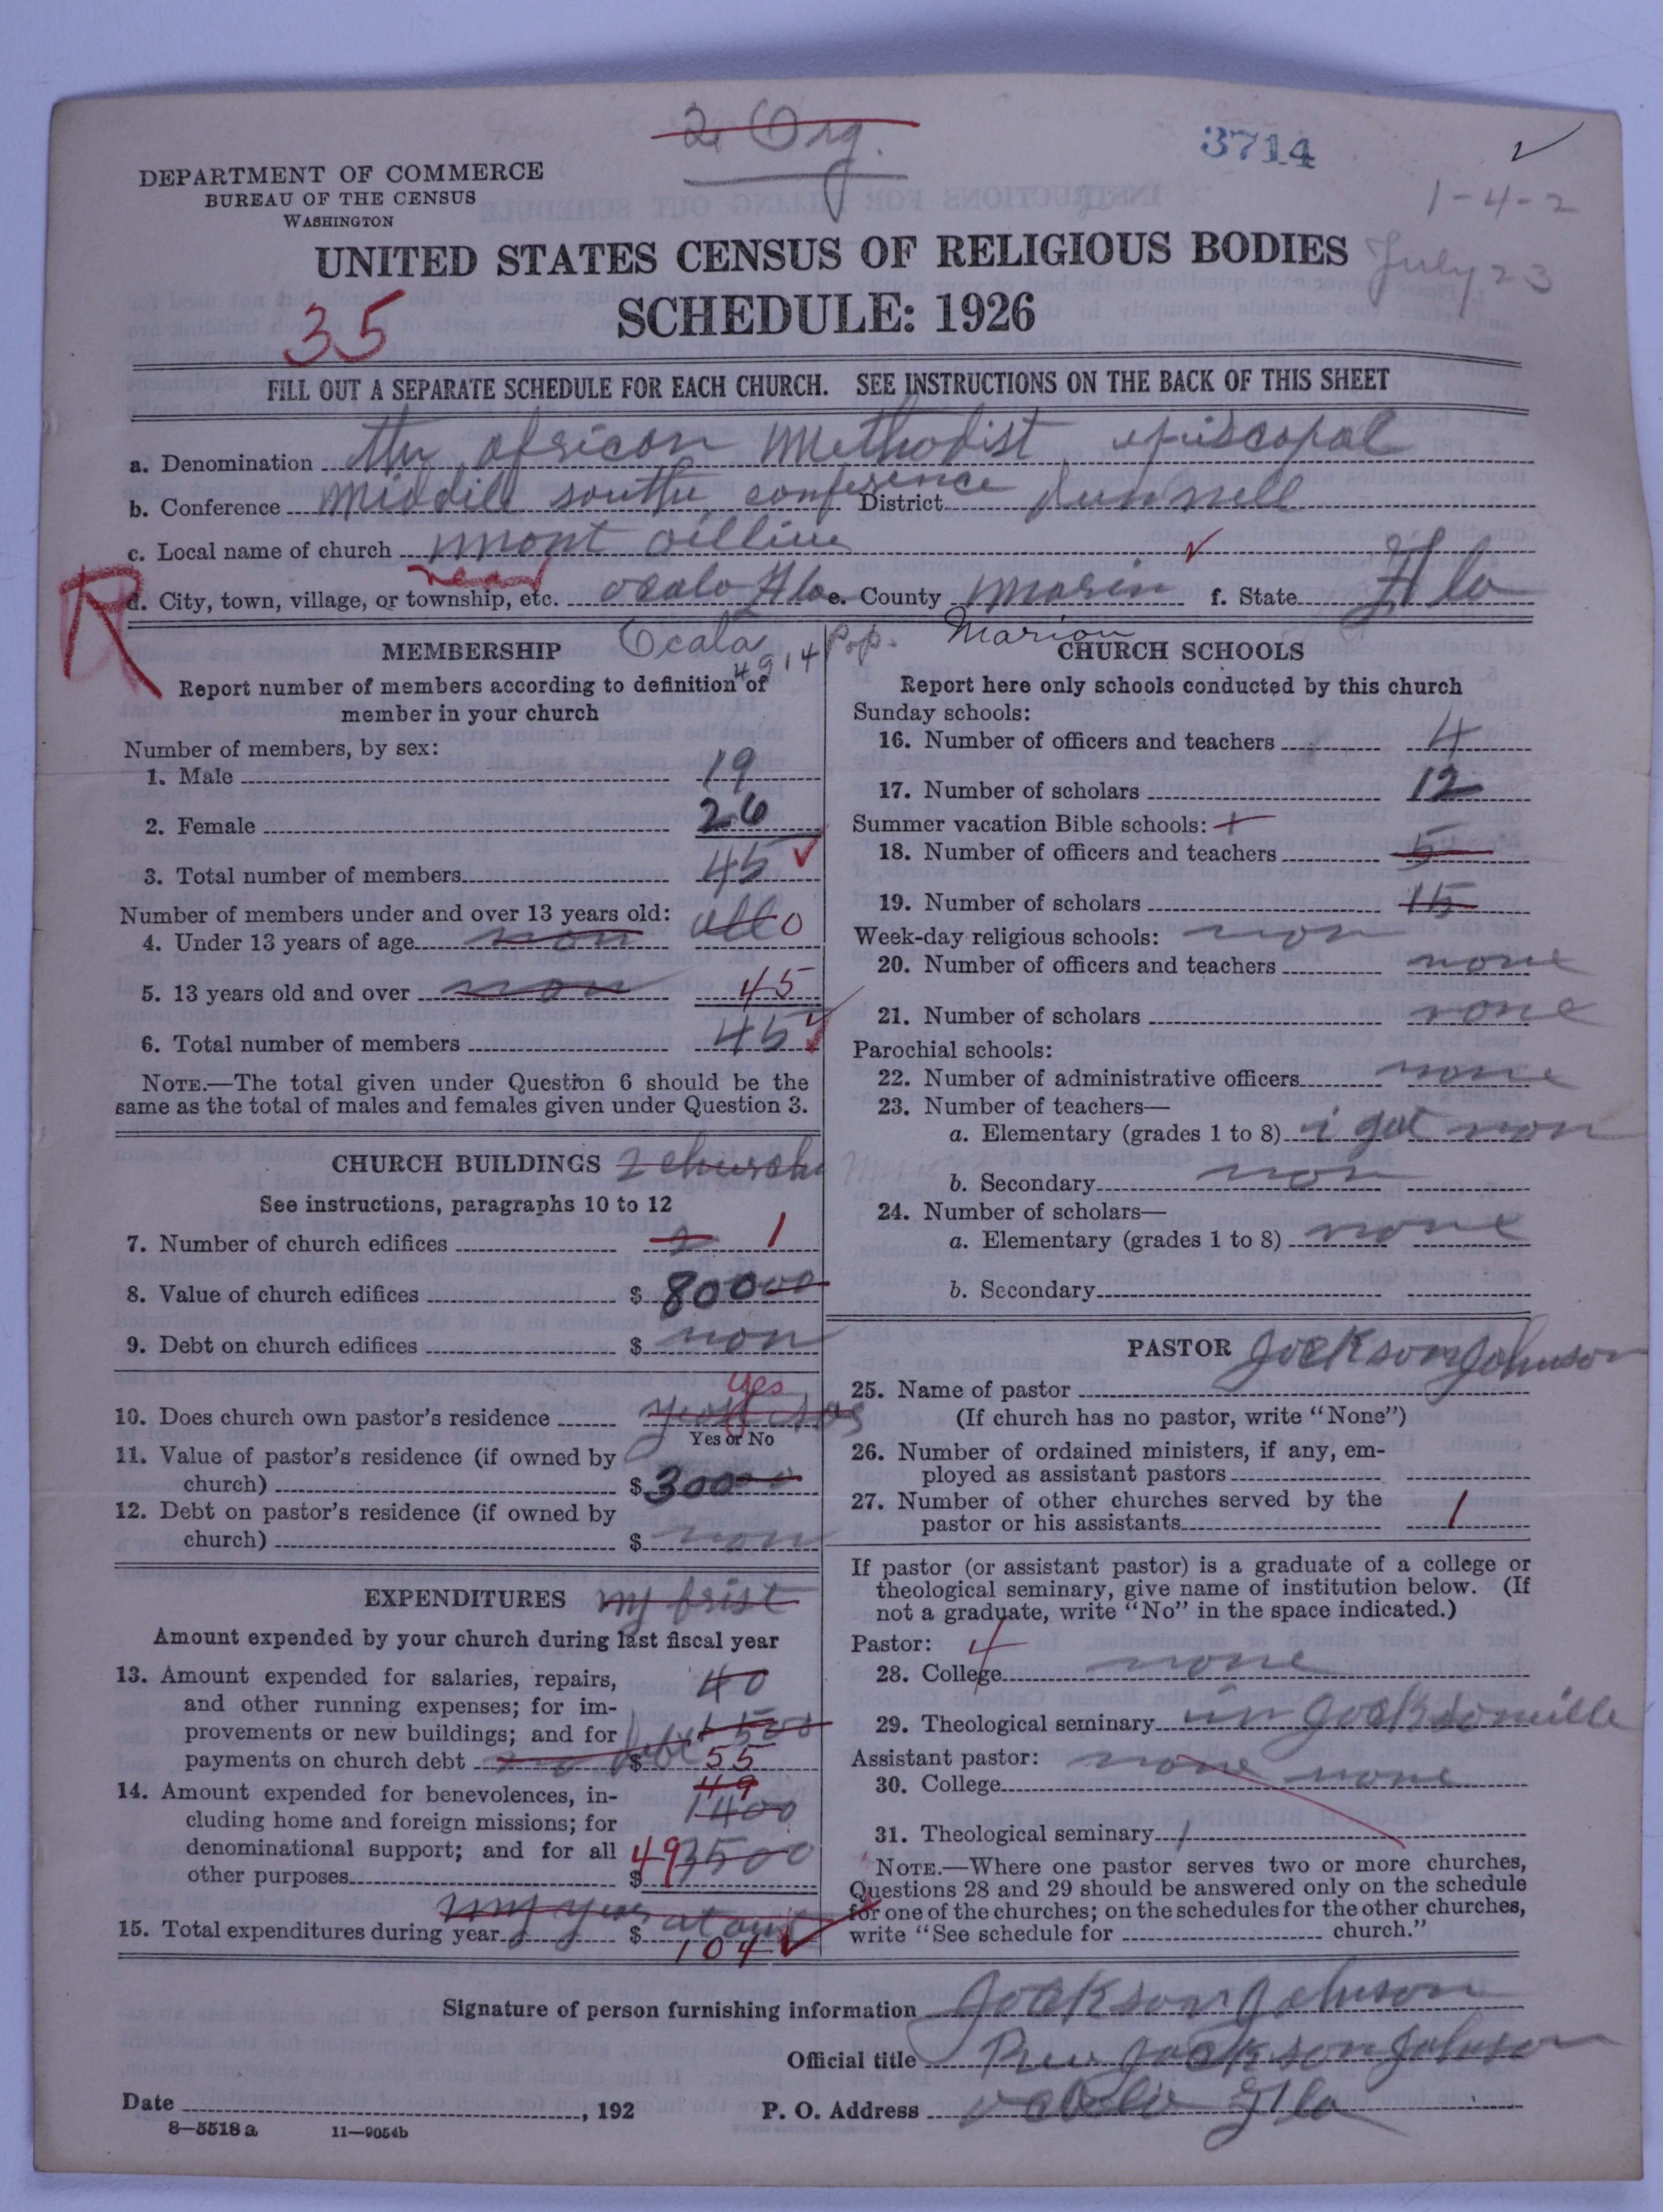 2 Org.
3714
1-4-2
DEPARTMENT OF COMMERCE
BUREAU OF THE CENSUS
WASHINGTON
UNITED STATES CENSUS OF RELIGIOUS BODIES
July 23
35
SCHEDULE: 1926
FILL OUT A SEPARATE SCHEDULE FOR EACH CHURCH. SEE INSTRUCTIONS ON THE BACK OF THIS SHEET
a. Denomination the africon methodist episcopal
b. Conference middile south conference District dunnell
c. Local name of church mont oillive
R near
d. City, town, village, or township, etc. ocalo Flo e. County morin f. State Flo
Ocala 4914 Pop. Marion
MEMBERSHIP
Report number of members according to definition of
member in your church
Number of members, by sex:
1. Male 19
2. Female 26
3. Total number of members 45
Number of members under and over 13 years old: all 0
4. Under 13 years of age non
5. 13 years old and over non 45
6. Total number of members 45
NOTE.—The total given under Question 6 should be the
same as the total of males and females given under Question 3.
CHURCH BUILDINGS 2 church
See instructions, paragraphs 10 to 12
7. Number of church edifices 2 1
8. Value of church edifices $ 80000
9. Debt on church edifices $ non
yes
10. Does church own pastor's residence
Yes or No
11. Value of pastor's residence (if owned by
church) $ 30000
12. Debt on pastor's residence (if owned by
church) $ non
EXPENDITURES my frist
Amount expended by your church during last fiscal year
13. Amount expended for salaries, repairs, 40
and other running expenses; for im-
provements or new buildings; and for 1500
payments on church debt no debt $ 55
14. Amount expended for benevolences, in- 49
cluding home and foreign missions; for 1400
denominational support; and for all 49 3500
other purposes $
my year
15. Total expenditures during year $ 104
CHURCH SCHOOLS
Report here only schools conducted by this church
Sunday schools:
16. Number of officers and teachers 4
17. Number of scholars 12
Summer vacation Bible schools:
18. Number of officers and teachers 5
19. Number of scholars 15
Week-day religious schools: non
20. Number of officers and teachers none
21. Number of scholars none
Parochial schools:
22. Number of administrative officers none
23. Number of teachers—
a. Elementary (grades 1 to 8) i got non
b. Secondary non
24. Number of scholars—
a. Elementary (grades 1 to 8) none
b. Secondary
PASTOR Jockson Johnson
25. Name of pastor
(If church has no pastor, write "None")
26. Number of ordained ministers, if any, em-
ployed as assistant pastors
27. Number of other churches served by the
pastor or his assistants 1
If pastor (or assistant pastor) is a graduate of a college or
theological seminary, give name of institution below. (If
not a graduate, write "No" in the space indicated.)
Pastor: 4
28. College none
29. Theological seminary in Jocksonville
Assistant pastor: none none
30. College
31. Theological seminary
NOTE.—Where one pastor serves two or more churches,
Questions 28 and 29 should be answered only on the schedule
for one of the churches; on the schedules for the other churches,
write "See schedule for church."
Signature of person furnishing information Jockson Johnson
Official title Rev Jockson Johnson
Date , 192 P. O. Address ocolo Flo
8—5518 a 11—9054b